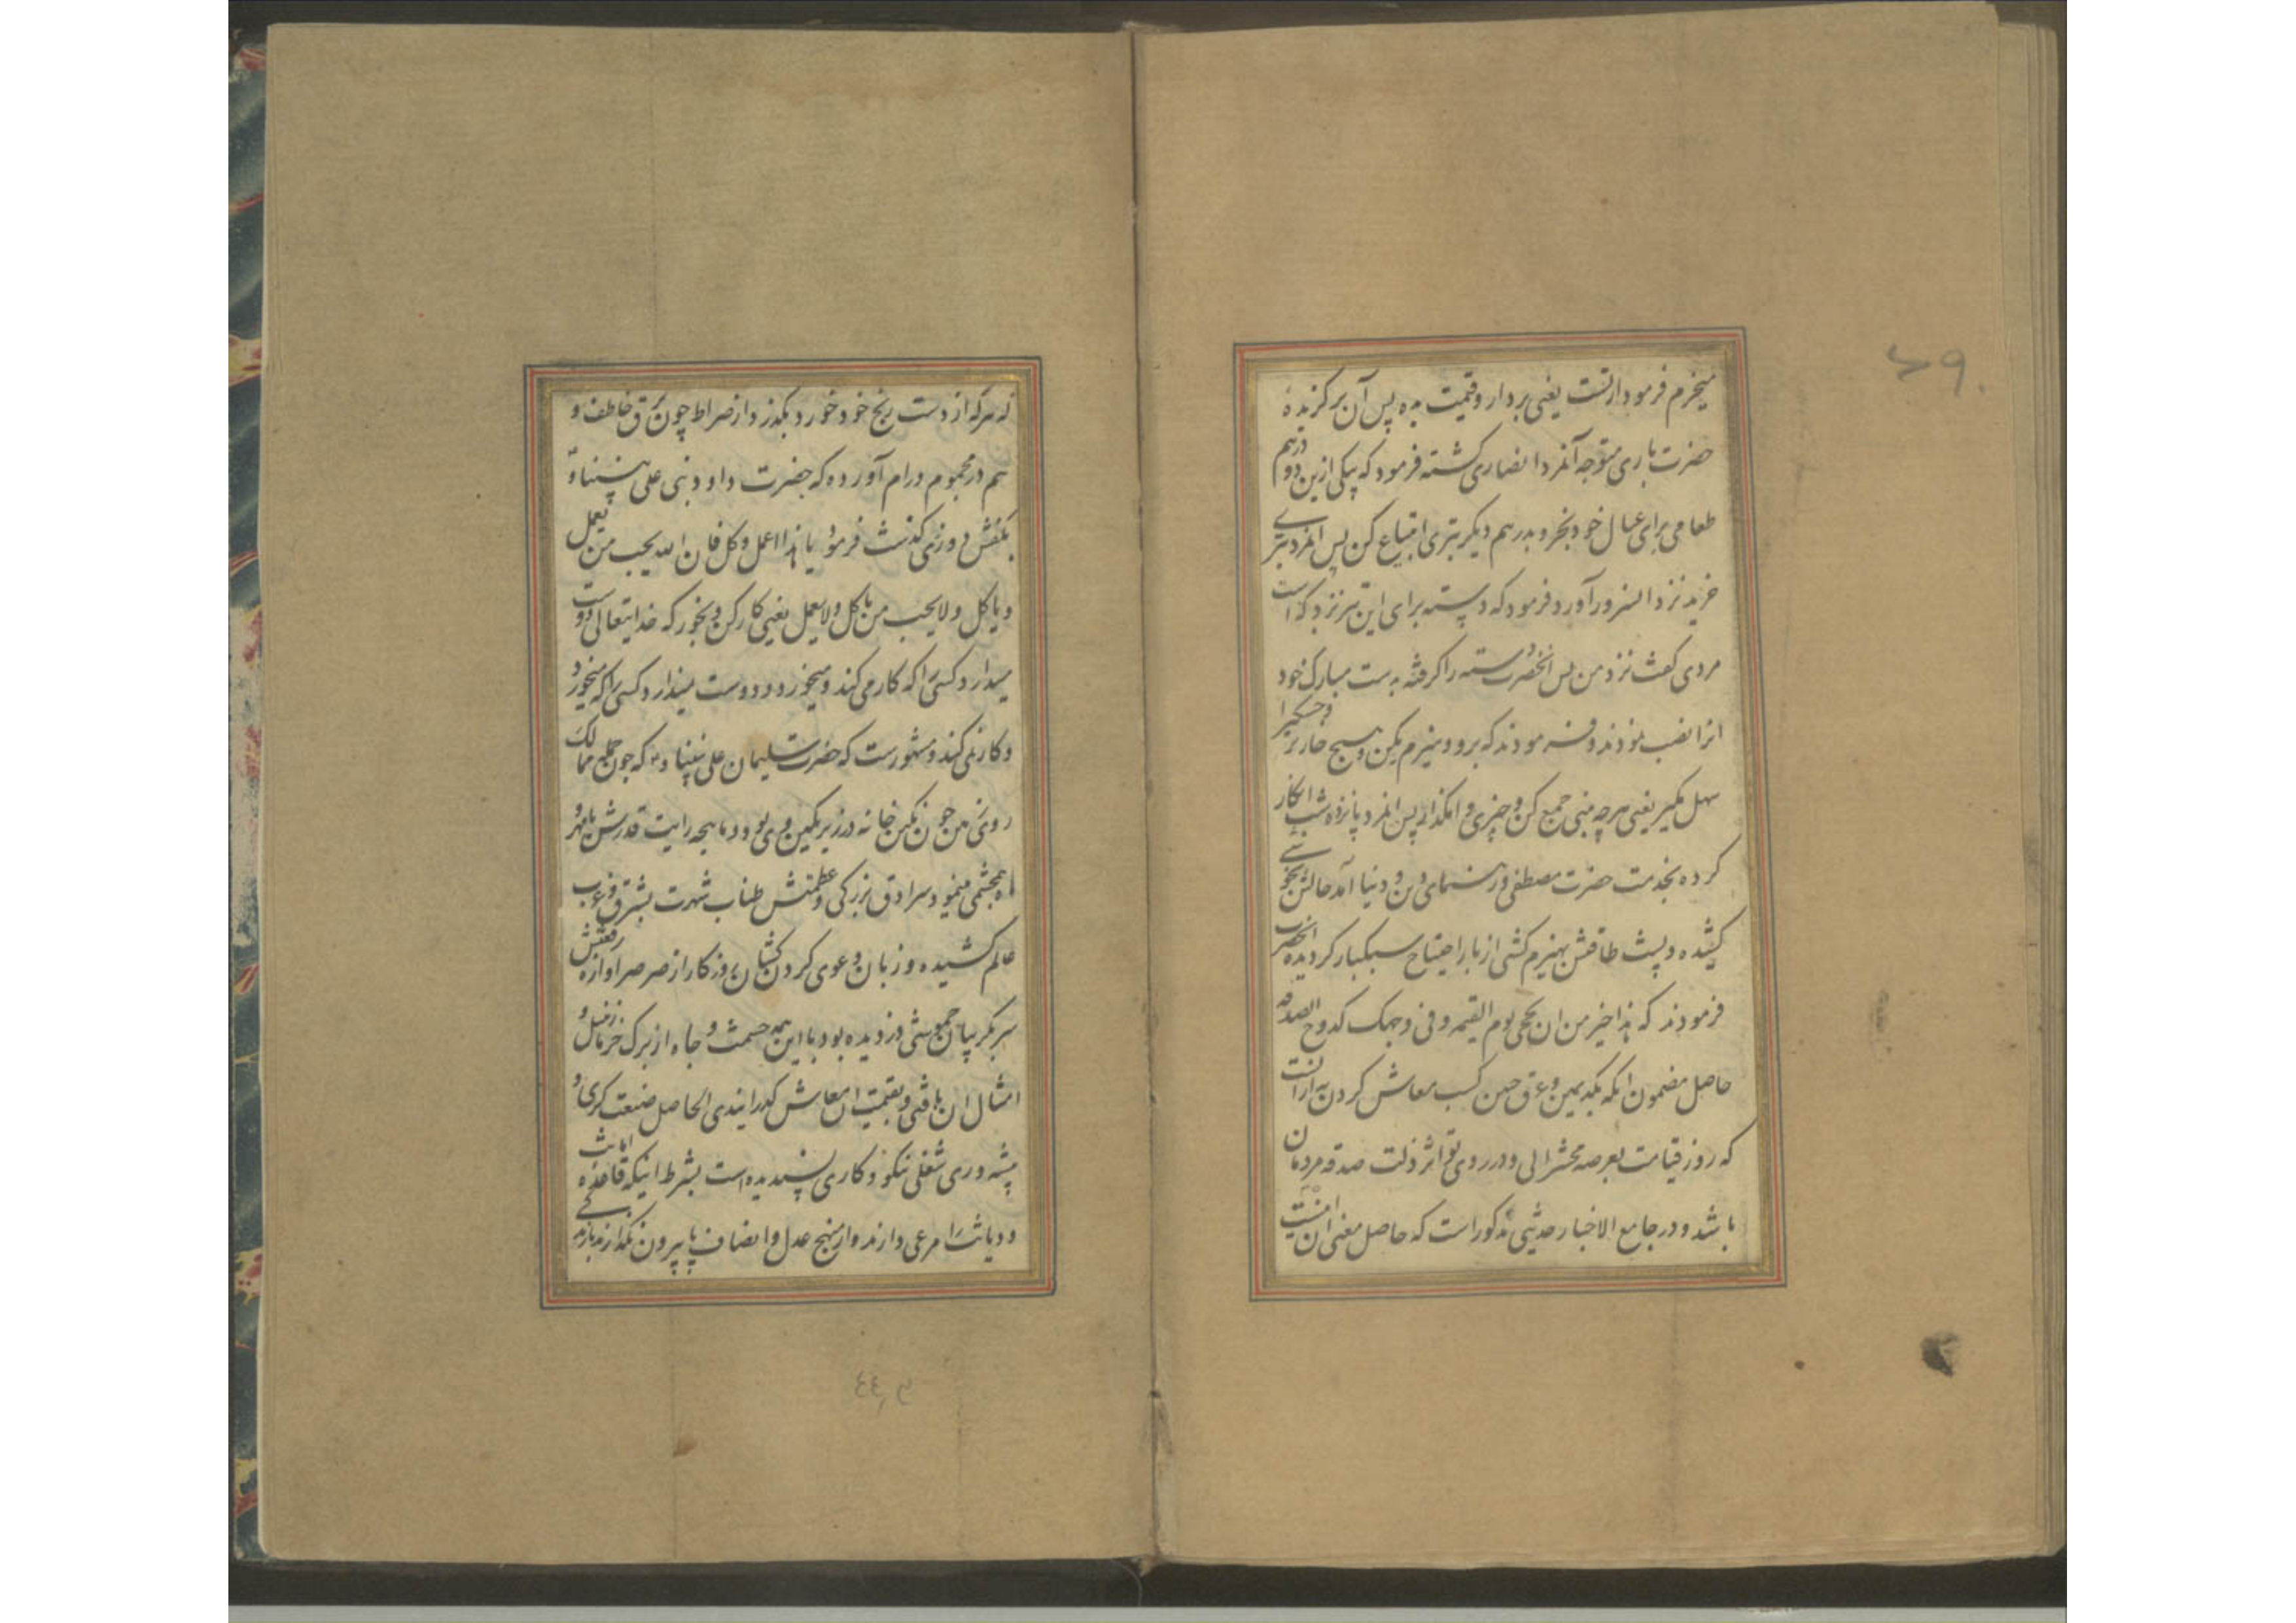 میخرم فرمود ازتست یعنی بردار و قیمت بده پس آن برگزیدهٔ
حضرت باری متوجه آنمرد انصاری گشته فرمود که بیکی ازین دو درهم
طعامی برای عیال خود بخر و بدرهم دیگر تبری ابتیاع کن پس انمرد تبری
خرید نزد انسرور آورد فرمود که دسته برای این تبر نزد که است
مردی گفت نزد من پس انحضرت دسته را گرفته بدست مبارک خود
انرا نصب نمودند و فرمودند که برو و هیزم بکن و هیچ خار تر و خشک را
سهل مگیر یعنی هر چه بینی جمع کن و چیزی وامگذار پس انمرد پانزده شب انکار
کرده بخدمت حضرت مصطفی و رهنمای دین و دنیا آمد حالش بخوشی
کشیده و پشت طاقتش بهیزم کشی از بار احتیاج سبکبار گردیده انحضرت
فرمودند که هذا خیر من ان یجئ یوم القیمه و فی وجهک کدوح الصدقه
حاصل مضمون انکه بکد یمین و عرق جبین کسب معاش کردن به ازانست
که روز قیامت بعرصه محشر ائی و در روی تو اثر ذلت صدقه مردمان
باشد و در جامع الاخبار حدیثی مذکور است که حاصل معنی ان اینست
که هر که از دست رنج خود خورد بگذرد از صراط چون برق خاطف و
هم در مجموم ورام آورده که حضرت داود نبی علی نبینا و
بکفش دوزی گذشت فرمود یا هذا اعمل و کل فان الله یحب من یعمل
و یاکل و لا یحب من یاکل و لا یعمل یعنی کار کن و بخور که خدایتعالی دوست
میدارد کسی را که کار می کند و میخورد و دوست نمیدارد کسی را که میخورد
و کار نمی کند و مشهورست که حضرت سلیمان علی نبینا و که چون جمیع ممالک
روی زمین چون نگین خانه در زیر نگین وی بود و ماهچه رایت قدرش با مهر
همچشمی مینمود سرادق بزرگی و عظمتش طناب شهرت بشرق و غرب
عالم کشیده و زبان دعوی گردن کشان روزگار از صرصر اوازه رفعتش
سر بگریبان خموشی دزدیده بود با این همه حشمت و جاه از برگ خرما زنبیل و
امثال ان بافتی و بقیمت ان معاش گذرانیدی الحاصل صنعت گری و
پیشه وری شغلی نیکو و کاری پسندیده است بشرط اینکه قاعده امانت
و دیانت را مرعی دارند و از منهج عدل و انصاف پا بیرون نگذارند